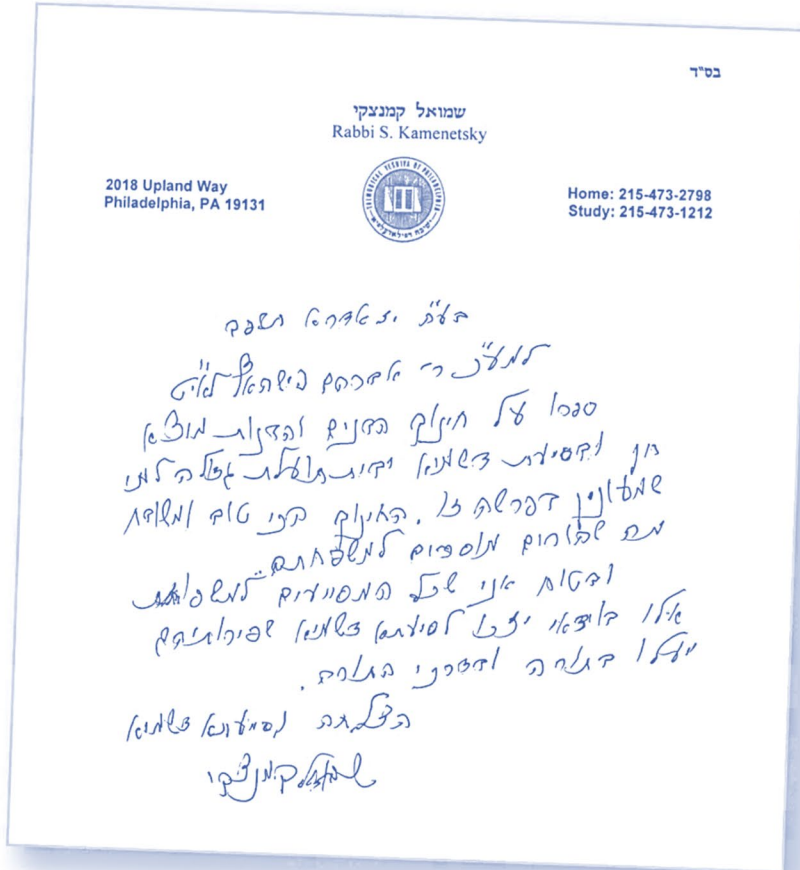 בס"ד
שמואל קמנצקי
Rabbi S. Kamenetsky
2018 Upland Way
Philadelphia, PA 19131
TALMUDICAL YESHIVA OF PHILADELPHIA
Home: 215-473-2798
Study: 215-473-1212
בע"ה יז אדר א תשפב
למע"כ ר' אברהם
ספרו על חינוך הבנים והבנות מוצא
חן ובסיעתא דשמיא יהיה תועלת גדולה למי
שמעונין בפרשה זו. החינוך הכי טוב ומשובח
מה שההורים מוסרים למשפחתם
ובטוח אני שכל המסייעים למשפחות
אלו בודאי יזכו לסיעתא דשמיא שפירותיהם
יעלו בתורה ובדרכי התורה.
הצלחה וסיעתא דשמיא
שמואל קמנצקי